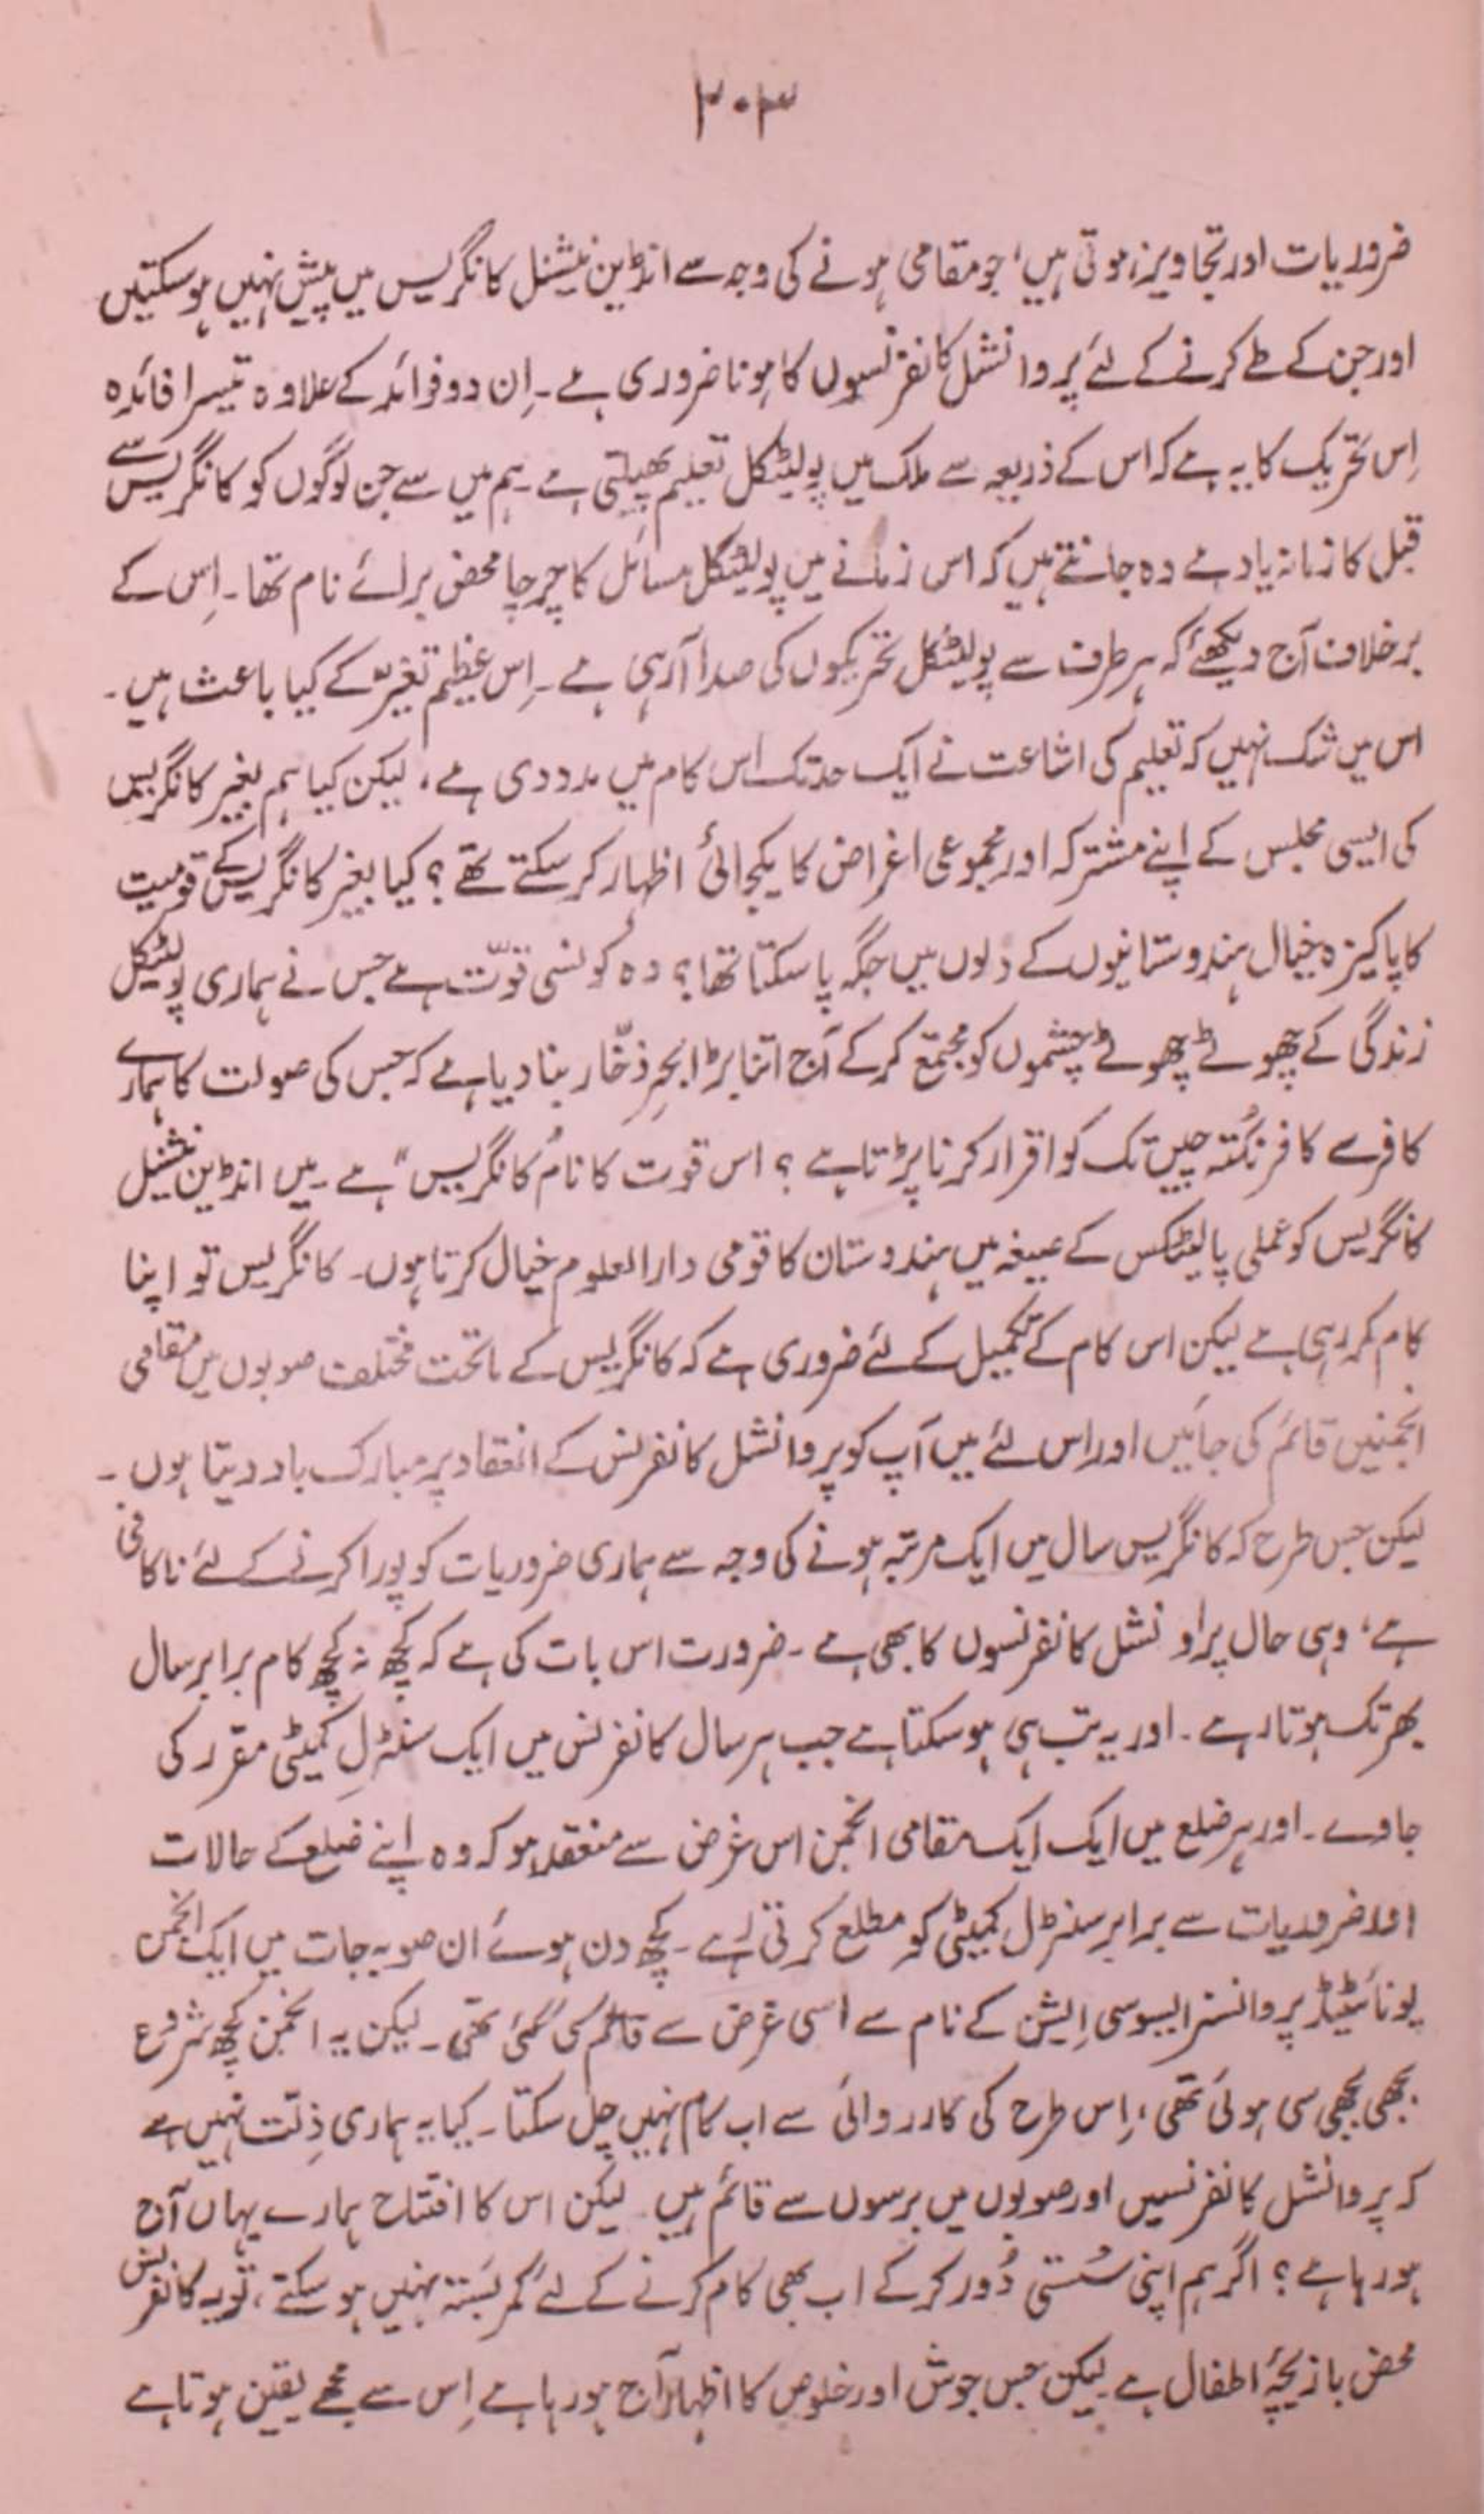 ۳۰۳
ضروریات اور تجاویز ہوتی ہیں، جو مقامی ہونے کی وجہ سے انڈین نیشنل کانگریس میں پیش نہیں ہو سکتیں
اور جن کے طے کرنے کے لئے پروانشل کانفرنسوں کا ہونا ضروری ہے۔ اِن دو فوائد کے علاوہ تیسرا فائدہ
اِس تحریک کا یہ ہے کہ اس کے ذریعہ سے ملک میں پولیٹکل تعلیم پھیلتی ہے۔ ہم میں سے جن لوگوں کو کانگریس سے
قبل کا زمانہ یاد ہے وہ جانتے ہیں کہ اس زمانے میں پولیٹکل مسائل کا چرچا محض برائے نام تھا۔ اِس کے
برخلاف آج دیکھئے کہ ہر طرف سے پولیٹکل تحریکوں کی صدا آرہی ہے۔ اِس عظیم تغیّر کے کیا باعث ہیں۔
اس میں شک نہیں کہ تعلیم کی اشاعت نے ایک حد تک اس کام میں مدد دی ہے، لیکن کیا ہم بغیر کانگریس
کی ایسی مجلس کے اپنے مشترکہ اور مجموعی اغراض کا یکجائی اظہار کر سکتے تھے؟ کیا بغیر کانگریس کے قومیت
کا پاکیزہ خیال ہندوستانیوں کے دلوں میں جگہ پا سکتا تھا؟ وہ کونسی قوّت ہے جس نے ہماری پولیٹکل
زندگی کے چھوٹے چھوٹے چشموں کو مجتمع کر کے آج اتنا بڑا بحرِ ذخّار بنا دیا ہے کہ جس کی صولت کا ہمارے
کافرے کافر نکتہ چیں تک کو اقرار کرنا پڑتا ہے؟ اس قوت کا نام "کانگریس" ہے۔ میں انڈین نیشنل
کانگریس کو عملی پالیٹکس کے صیغہ میں ہندوستان کا قومی دارالعلوم خیال کرتا ہوں۔ کانگریس تو اپنا
کام کر رہی ہے لیکن اس کام کے تکمیل کے لئے ضروری ہے کہ کانگریس کے ماتحت مختلف صوبوں میں مقامی
انجمنیں قائم کی جائیں اور اس لئے میں آپ کو پروانشل کانفرنس کے انعقاد پر مبارک باد دیتا ہوں۔
لیکن جس طرح کہ کانگریس سال میں ایک مرتبہ ہونے کی وجہ سے ہماری ضروریات کو پورا کرنے کے لئے ناکافی
ہے، وہی حال پراونشل کانفرنسوں کا بھی ہے۔ ضرورت اس بات کی ہے کہ کچھ نہ کچھ کام برابر سال
بھر تک ہوتا رہے۔ اور یہ تب ہی ہو سکتا ہے جب ہر سال کانفرنس میں ایک سنٹرل کمیٹی مقرر کی
جاوے۔ اور ہر ضلع میں ایک ایک مقامی انجمن اس غرض سے منعقد ہو کہ وہ اپنے ضلع کے حالات
اور ضروریات سے برابر سنٹرل کمیٹی کو مطلع کرتی رہے۔ کچھ دن ہوئے ان صوبہ جات میں ایک انجمن
یونائیٹیڈ پروانسز ایسوسی ایشن کے نام سے اسی غرض سے قائم کی گئی تھی۔ لیکن یہ انجمن کچھ شروع
بجھی بجھی سی ہوئی تھی، اِس طرح کی کارروائی سے اب کام نہیں چل سکتا۔ کیا یہ ہماری ذِلت نہیں ہے
کہ پروانشل کانفرنسیں اور صوبوں میں برسوں سے قائم ہیں۔ لیکن اس کا افتتاح ہمارے یہاں آج
ہو رہا ہے؟ اگر ہم اپنی سُستی دُور کر کے اب بھی کام کرنے کے لئے کمر بستہ نہیں ہو سکتے، تو یہ کانفرنس
محض بازیچۂ اطفال ہے لیکن جس جوش اور خلوص کا اظہار آج ہو رہا ہے اِس سے مجھے یقین ہوتا ہے